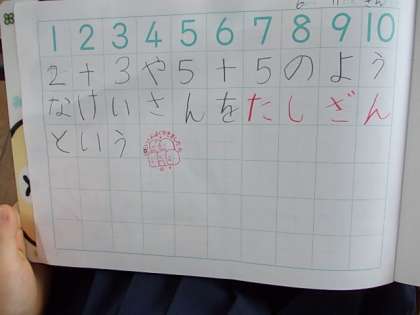 1 2 3 4 5 6 7 8 9 10
2+3や5+5のよう
なけいさんをたしざん
という